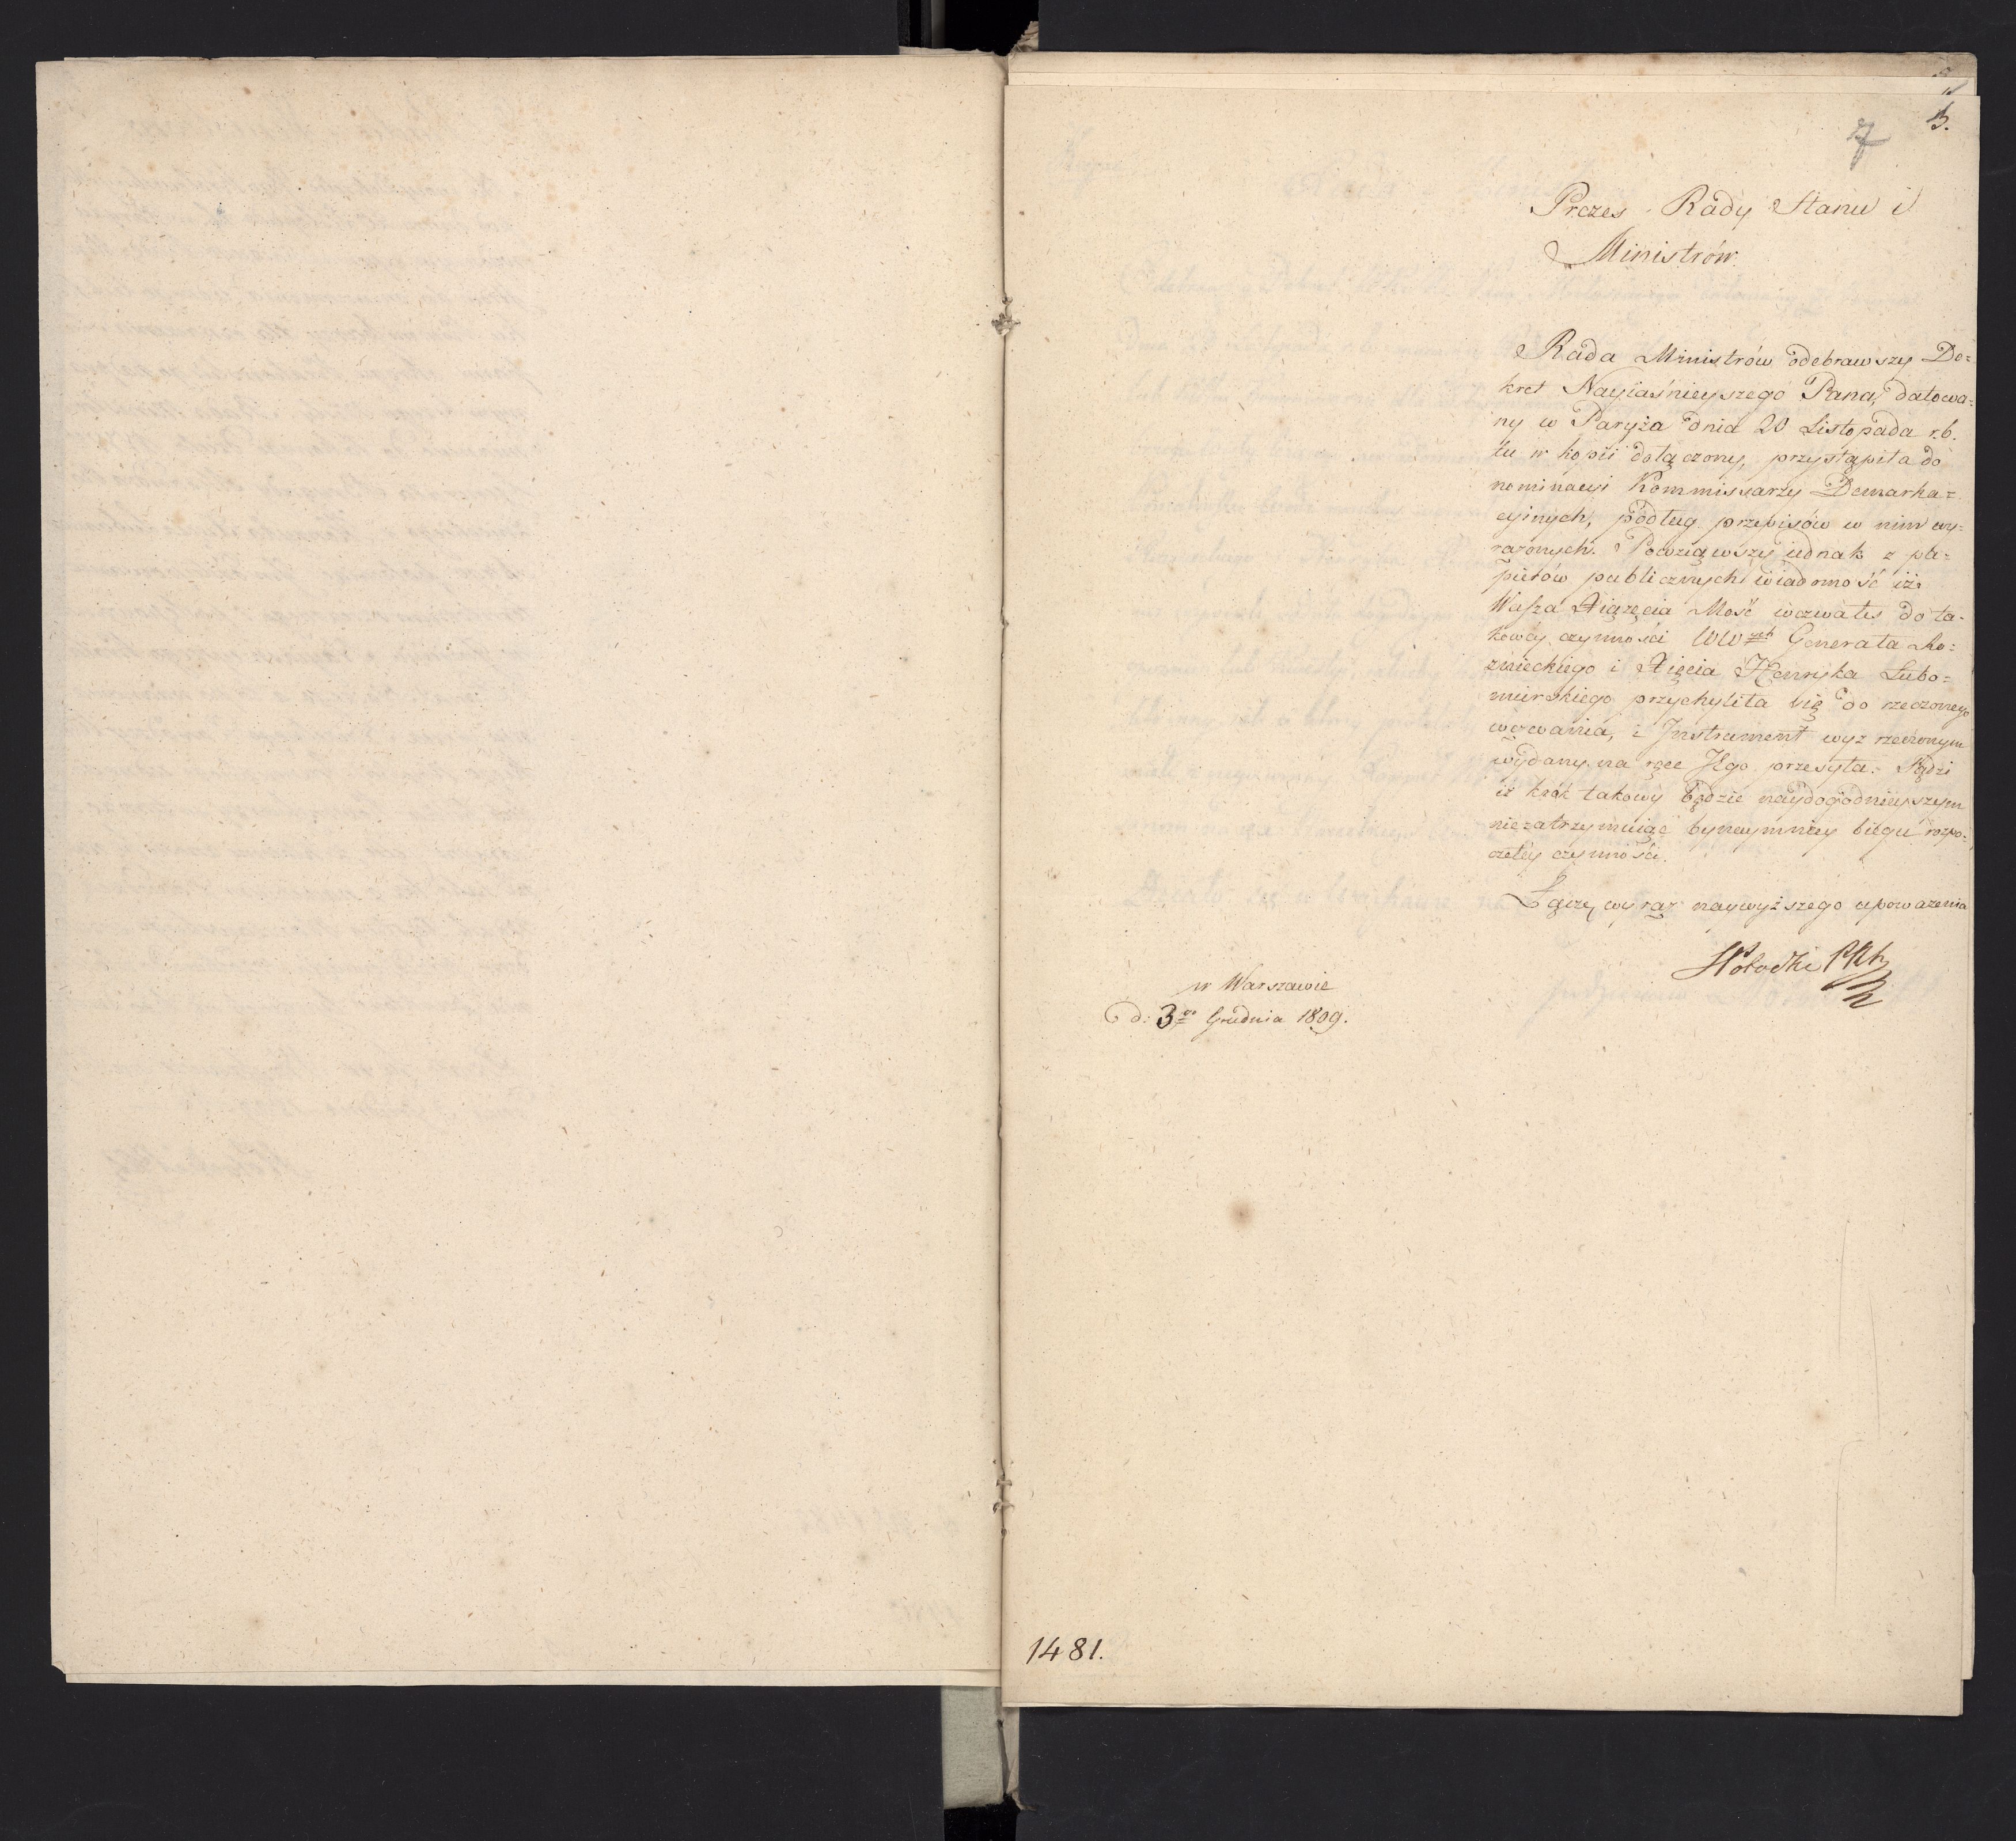 7
3.
Prezes Rady Stanu i
Ministrów.
Rada Ministrów odebrawszy De=
kret Nayiaśnieyszego Pana, datowa=
ny w Paryża dnia 20 Listopada r.b.
tu w kopii dołączony, przystąpiła do
nominacyi Kommissarzy Demarka=
cyinych, podług przepisów w nim wy=
rażonych. Powziąwszy iednak z pa=
pierów publicznych wiadomość iż
Wasza Xiążęcia Mość wezwałeś do ta=
kowey czynności WW^ych Generała Ro=
znieckiego i Xięcia Henryka Lubo=
mirskiego przychyliła się do rzeczonego
wezwania, i Instrument wyż rzeczonym
wydany na ręce Jego przesyła. Sądzi
iż krok takowy będzie naydogodnieyszym
niezatrzymuiąc bynaymniey biegu rozpo=
czętey czynności.
Łączę wyraz naywyższego upoważenia
St Potocki
w Warszawie
d: 3^go Grudnia 1809.
1481.